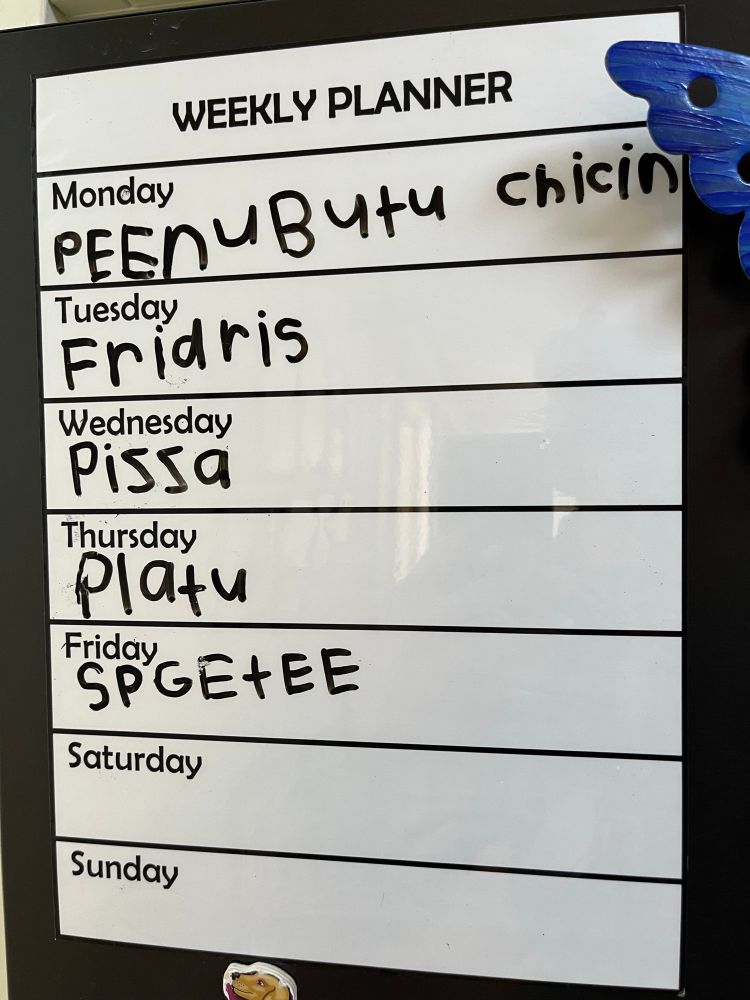 WEEKLY PLANNER
Monday
PEEnuButu chicin
Tuesday
Fridris
Wednesday
Pissa
Thursday
Platu
Friday
SPGEtEE
Saturday
Sunday